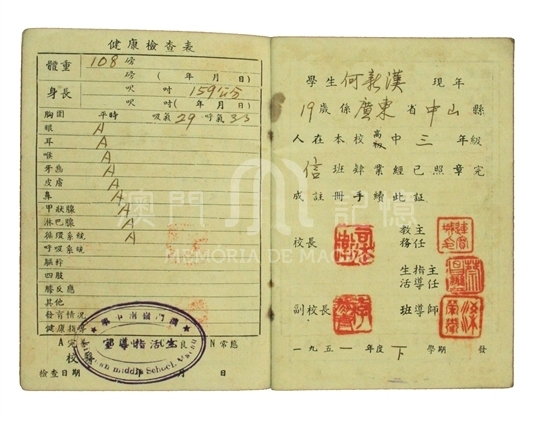 健康檢查表
體重 108 磅
磅( 年 月 日)
身長 呎 吋 159公分
呎 吋( 年 月 日)
胸圍 平時 吸氣 29 呼氣 33
眼 A
耳 A
喉 A
牙齒 A
皮膚 A
鼻 A
甲狀腺 A
淋巴腺 A
循環系統 A
呼吸系統
軀幹
四肢
膝反應
其他
發育情況
健康指導
A完 良 N常態
校
檢查日期 年 月 日
澳門嶺南中學
生活指導室
Middle School, Macau
學生何新漢 現年
19歲係廣東省中山縣
人在本校高級中三年級
信班肄業經已照章完
成註冊手續此証
校長
教務主任
生活指導主任
副校長
班導師
一九五一年度下學期 發
澳門記憶
MEMÓRIA DE MACAU